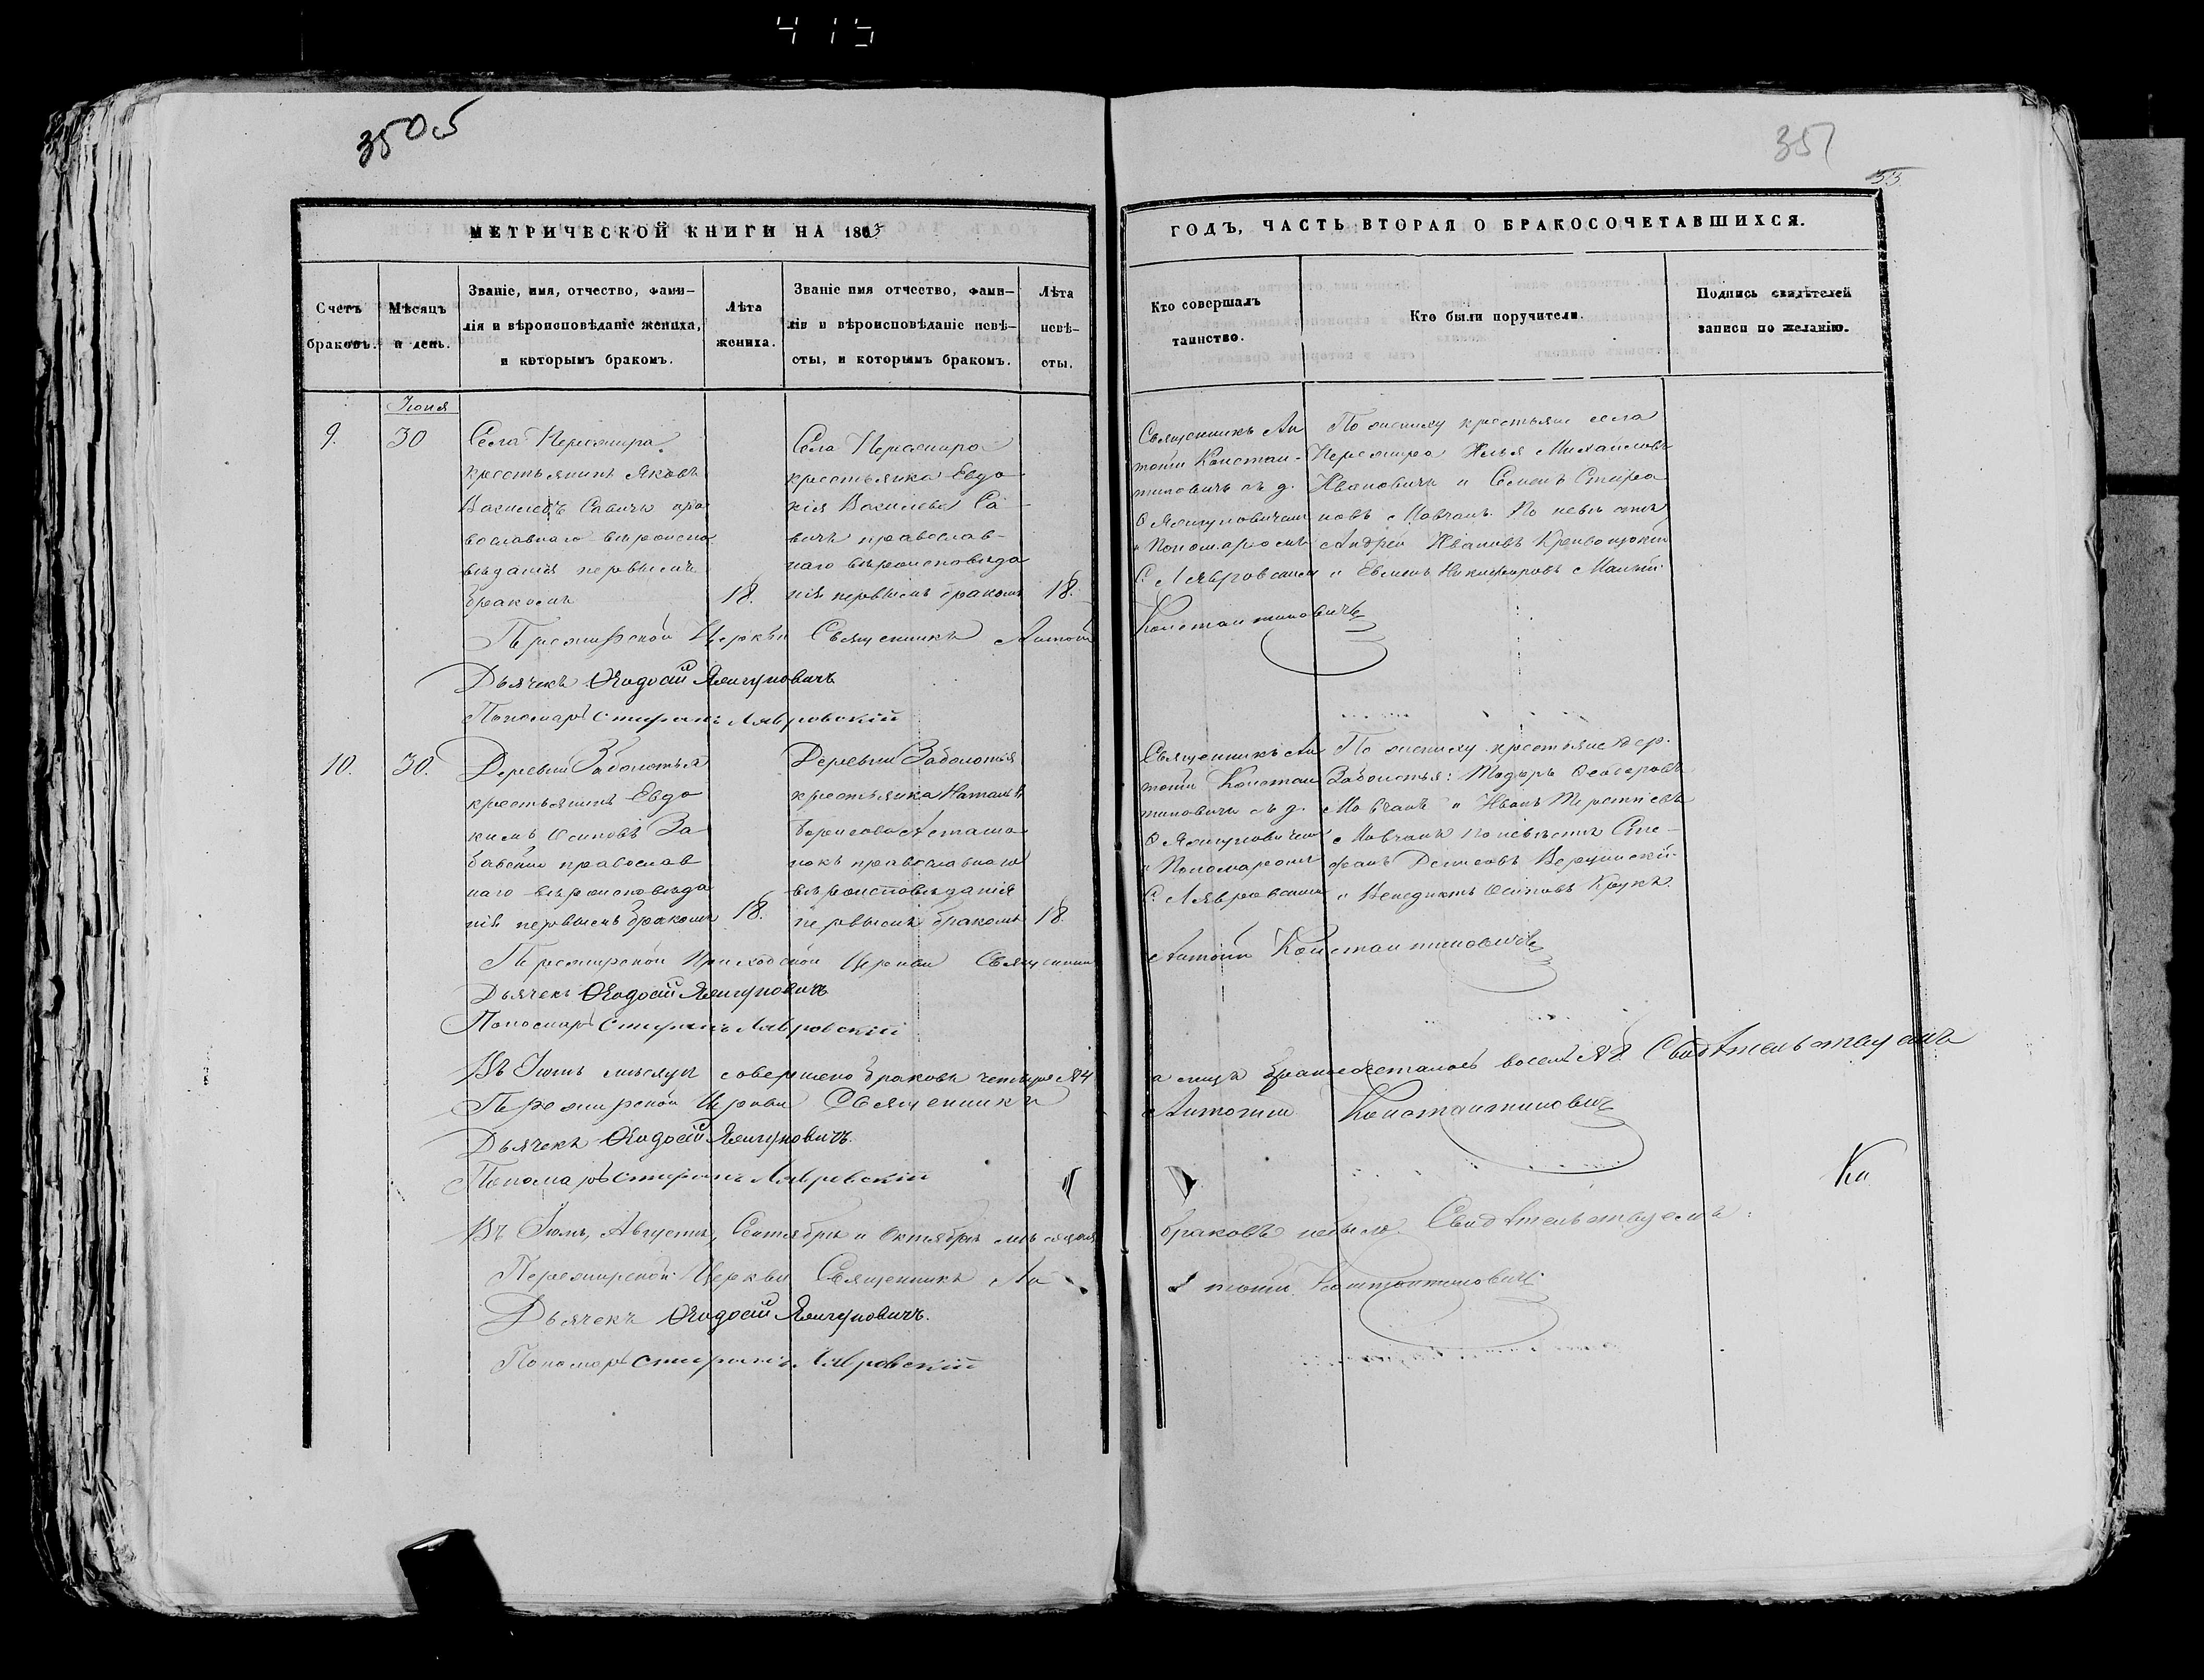 415
350об
351
33
МЕТРИЧЕСКОЙ КНИГИ НА 1863
ГОДЪ, ЧАСТЬ ВТОРАЯ О БРАКОСОЧЕТАВШИХСЯ.
Счетъ браковъ.
Мѣсяцъ и день.
Званіе, имя, отчество, фами-
лія и вѣроисповѣданіе жениха,
и которымъ бракомъ.
Лѣта жениха.
Званіе имя отчество, фами-
лія и вѣроисповѣданіе невѣ-
сты, и которымъ бракомъ.
Лѣта невѣ-
сты.
Кто совершалъ
таинство.
Кто были поручители.
Подпись свидѣтелей
записи по желанію.
Іюня
9.
30
Села Перемира
крестьянинъ Яковъ
Васильевъ Савичъ пра
вославнаго вѣроиспо
вѣданія первымъ
бракомъ
18.
Села Перемира
крестьянка Евдо
кія Васильева Са-
вичъ православ-
наго вѣроисповѣда
нія первымъ бракомъ
18.
Священникъ Ан
тоній Констан-
тиновичъ съ д.
Ѳ Ячигуновичемъ
и Пономаремъ
С. Лявровскимъ
По жениху крестьяне села
Перемира Илья Михайловъ
Ивановичъ и Семенъ
новъ Мовчанъ. По невѣстѣ
Андрей Ивановъ
и Евменъ Никифоровъ
Перемирской Церкви Священникъ Антоній Константиновичъ
Дьячекъ Ѳеодосій Ячигуновичъ
Пономарь Стефанъ Лявровскій
10.
30.
Деревни Заболотья
крестьянинъ Евдо
кимъ Осиповъ За
православ
наго вѣроисповѣда
нія первымъ бракомъ
18.
Деревни Заболотья
крестьянка Наталья
Борисова Асташо
нокъ православнаго
вѣроисповѣданія
первымъ бракомъ
18.
Священникъ Ан
тоній Констан
тиновичъ съ д.
Ѳ Ячигуновичемъ
и Пономаремъ
С. Лявровскимъ
По жениху крестьяне дер.
Заболотья: Тодоръ
Мовчанъ и Иванъ Терентіевъ
Мовчанъ по невѣстѣ Сте-
фанъ Денисовъ
и Венедиктъ Осиповъ Крукъ.
Перемирской Приходской Церкви Священникъ Антоній Константиновичъ
Дьячекъ Ѳеодосій Ячигуновичъ
Пономарь Стефанъ Лявровскій
Въ Іюнѣ мѣсяцѣ совершено браковъ четыре №4 а лицъ бракосочеталось восемь №8. Свидѣтельствуемъ
Перемирской Церкви Священникъ Антоній Константиновичъ
Дьячекъ Ѳеодосій Ячигуновичъ.
Пономарь Стефанъ Лявровскій
Ка
Въ Іюлѣ, Августѣ, Сентябрѣ и Октябрѣ мѣсяцахъ браковъ небыло. Свидѣтельствуемъ:
Перемирской Церкви Священникъ Антоній Константиновичъ
Дьячекъ Ѳеодосій Ячигуновичъ.
Пономарь Стефанъ Лявровскій